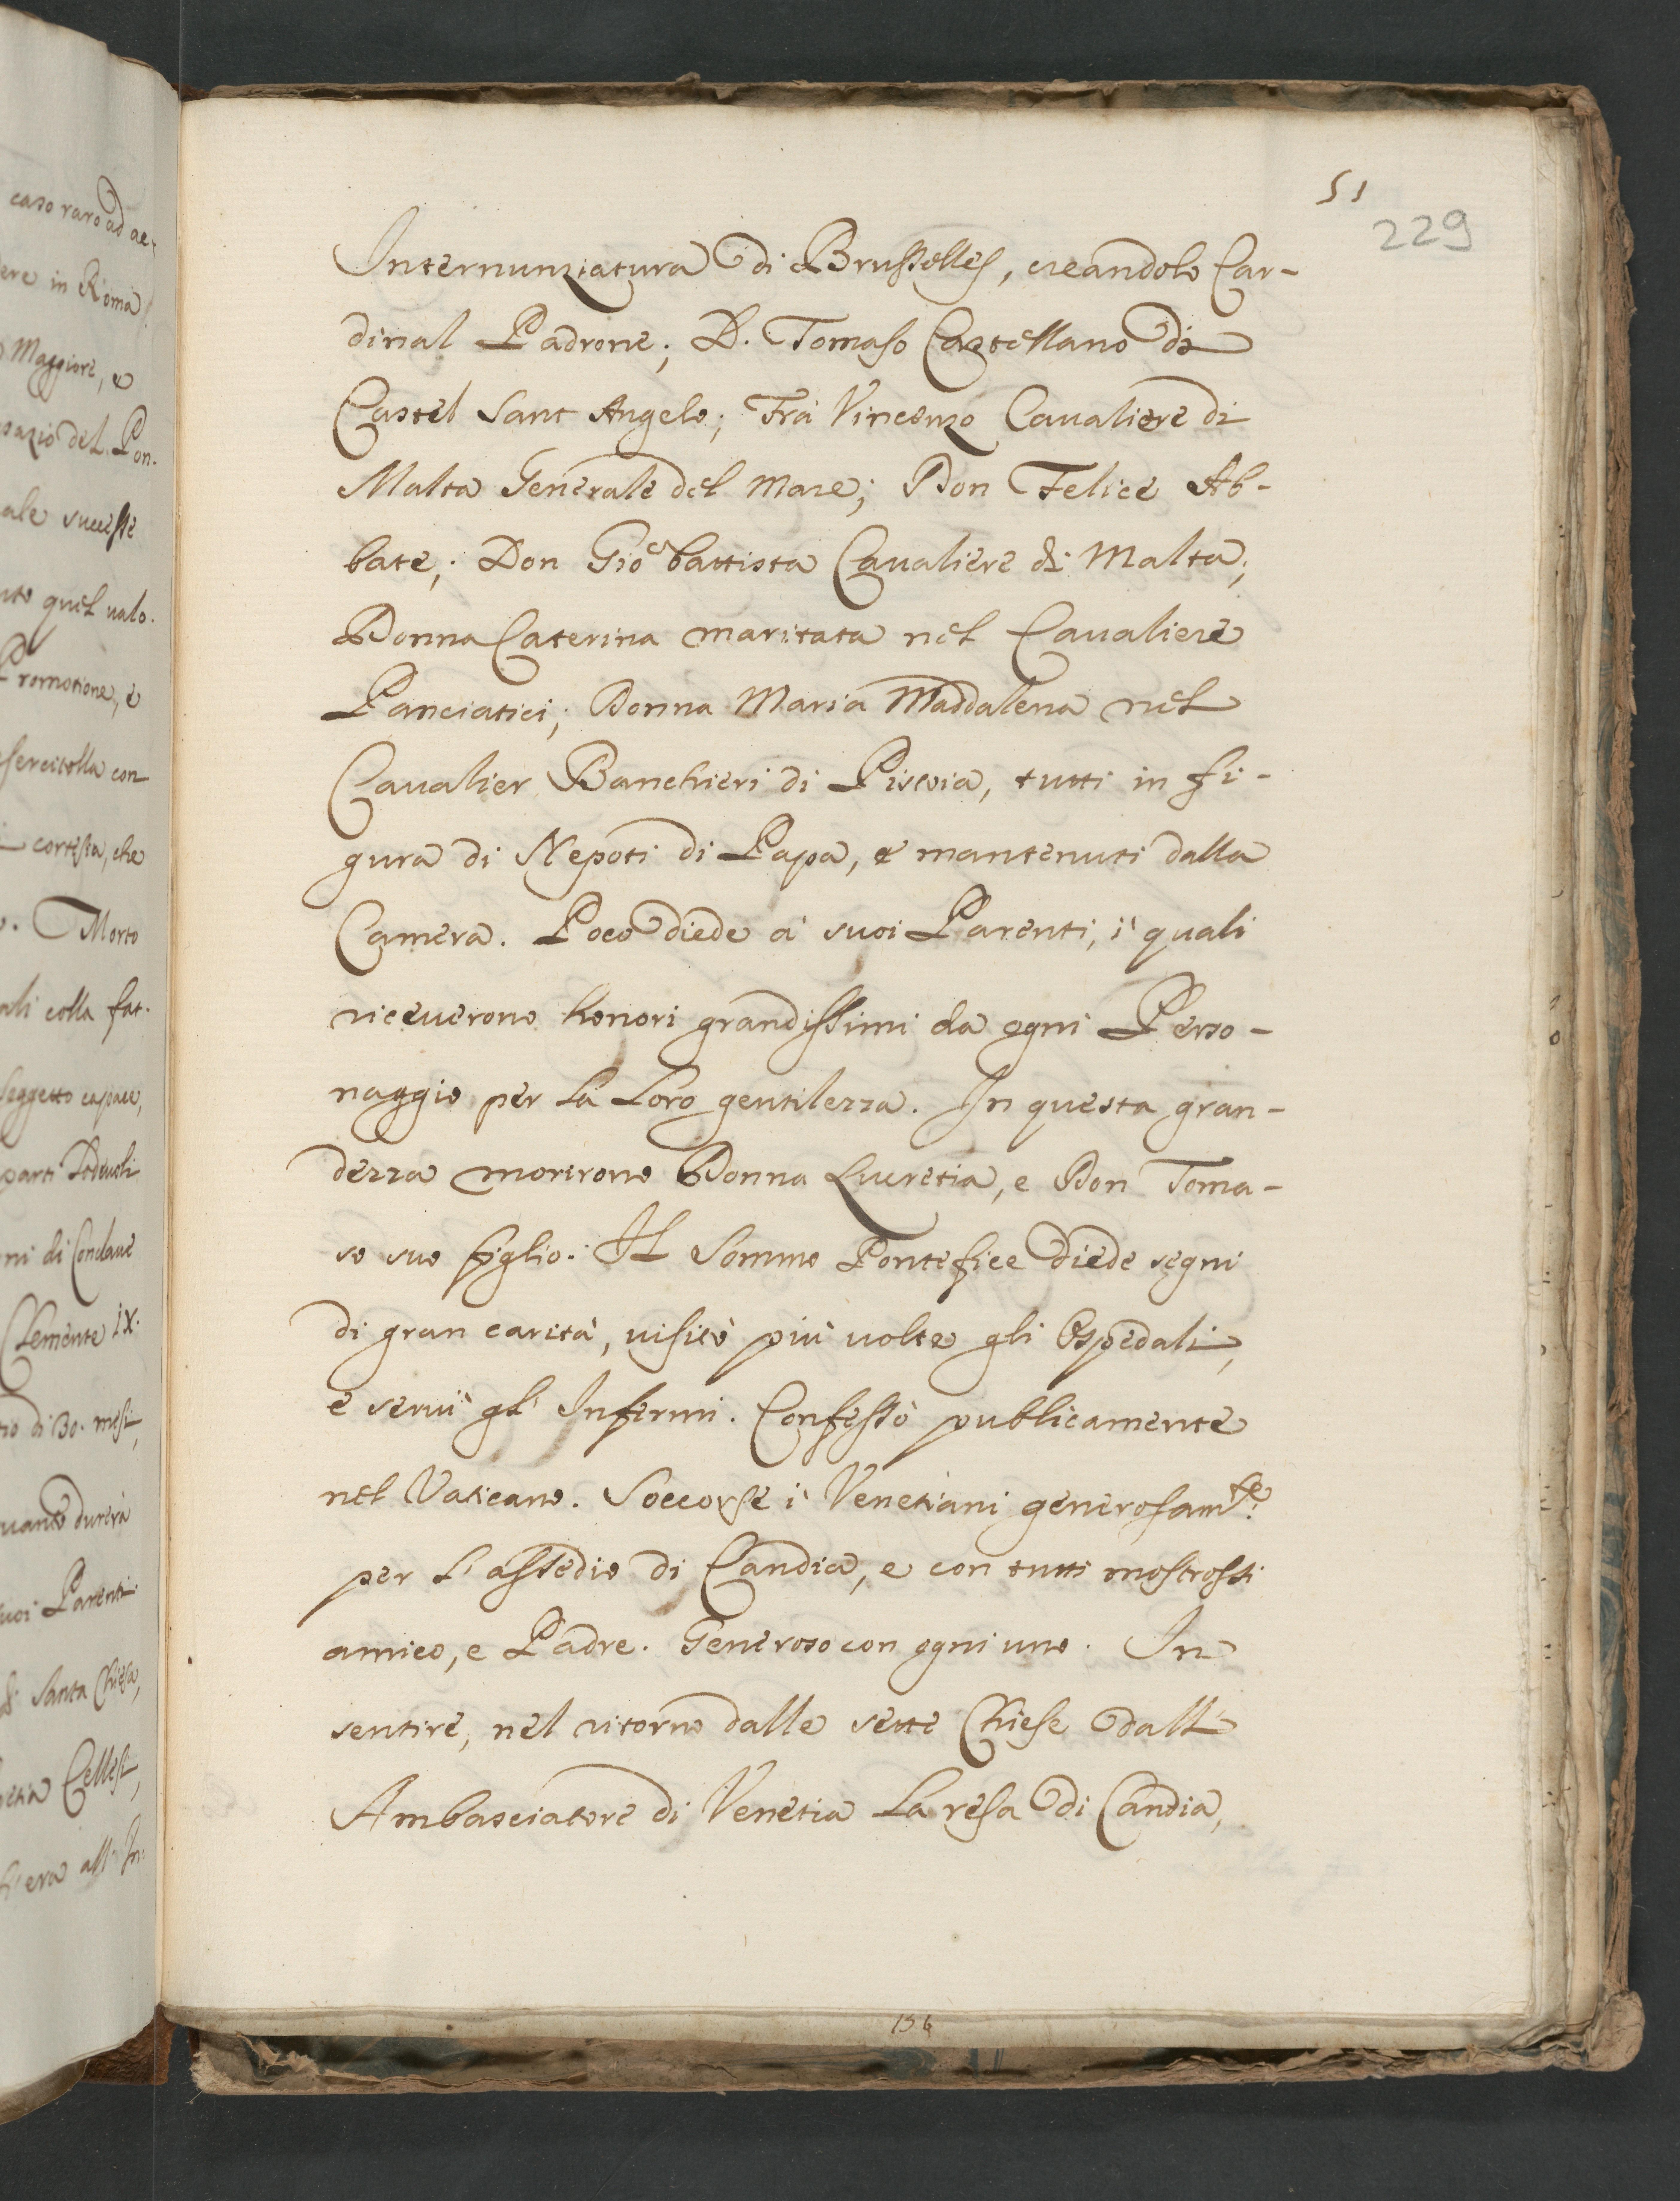 caso raro ad ac-
ere in Roma
Maggiore, e
del Pon-
ale successe
quel valo-
Promotione, e
sercitolla con
cortesia, che
Morto
ali colla fat-
soggetto capace,
parti
ni di Conclave
Clemente IX.
di 30. mesi,
durerà
uoi Parenti
Santa Chiesa,
Cellesi,
era all' In-
51
229
Internunziatura di Brusselles, creandolo Car-
dinal Padrone; D. Tomaso Castellano di
Castel Sant Angelo; Frà Vincenzo Cavaliere di
Malta Generale del Mare; Don Felice Ab-
bate; Don Gio: battista Cavaliere di Malta;
Donna Caterina maritata nel Cavaliere
Panciatici; Donna Maria Maddalena nel
Cavalier Banchieri di Pistoia, tutti in fi-
gura di Nepoti di Papa, e mantenuti dalla
Camera. Poco diede à suoi Parenti, i quali
riceverono honori grandissimi da ogni Perso-
naggio per la loro gentilezza. In questa gran-
dezza morirono Donna Lucretia, e Don Toma-
so suo figlio. Il Sommo Pontefice diede segni
di gran carità, visitò più volte gli Ospedali,
e servì gl' Infermi. Confessò publicamente
nel Vaticano. Soccorse i Venetiani generosam.te
per l'assedio di Candia, e con tutti mostrossi
amico, e Padre. Generoso con ogni uno. In
sentire, nel ritorno dalle sette Chiese dall'
Ambasciatore di Venetia la resa di Candia,
156